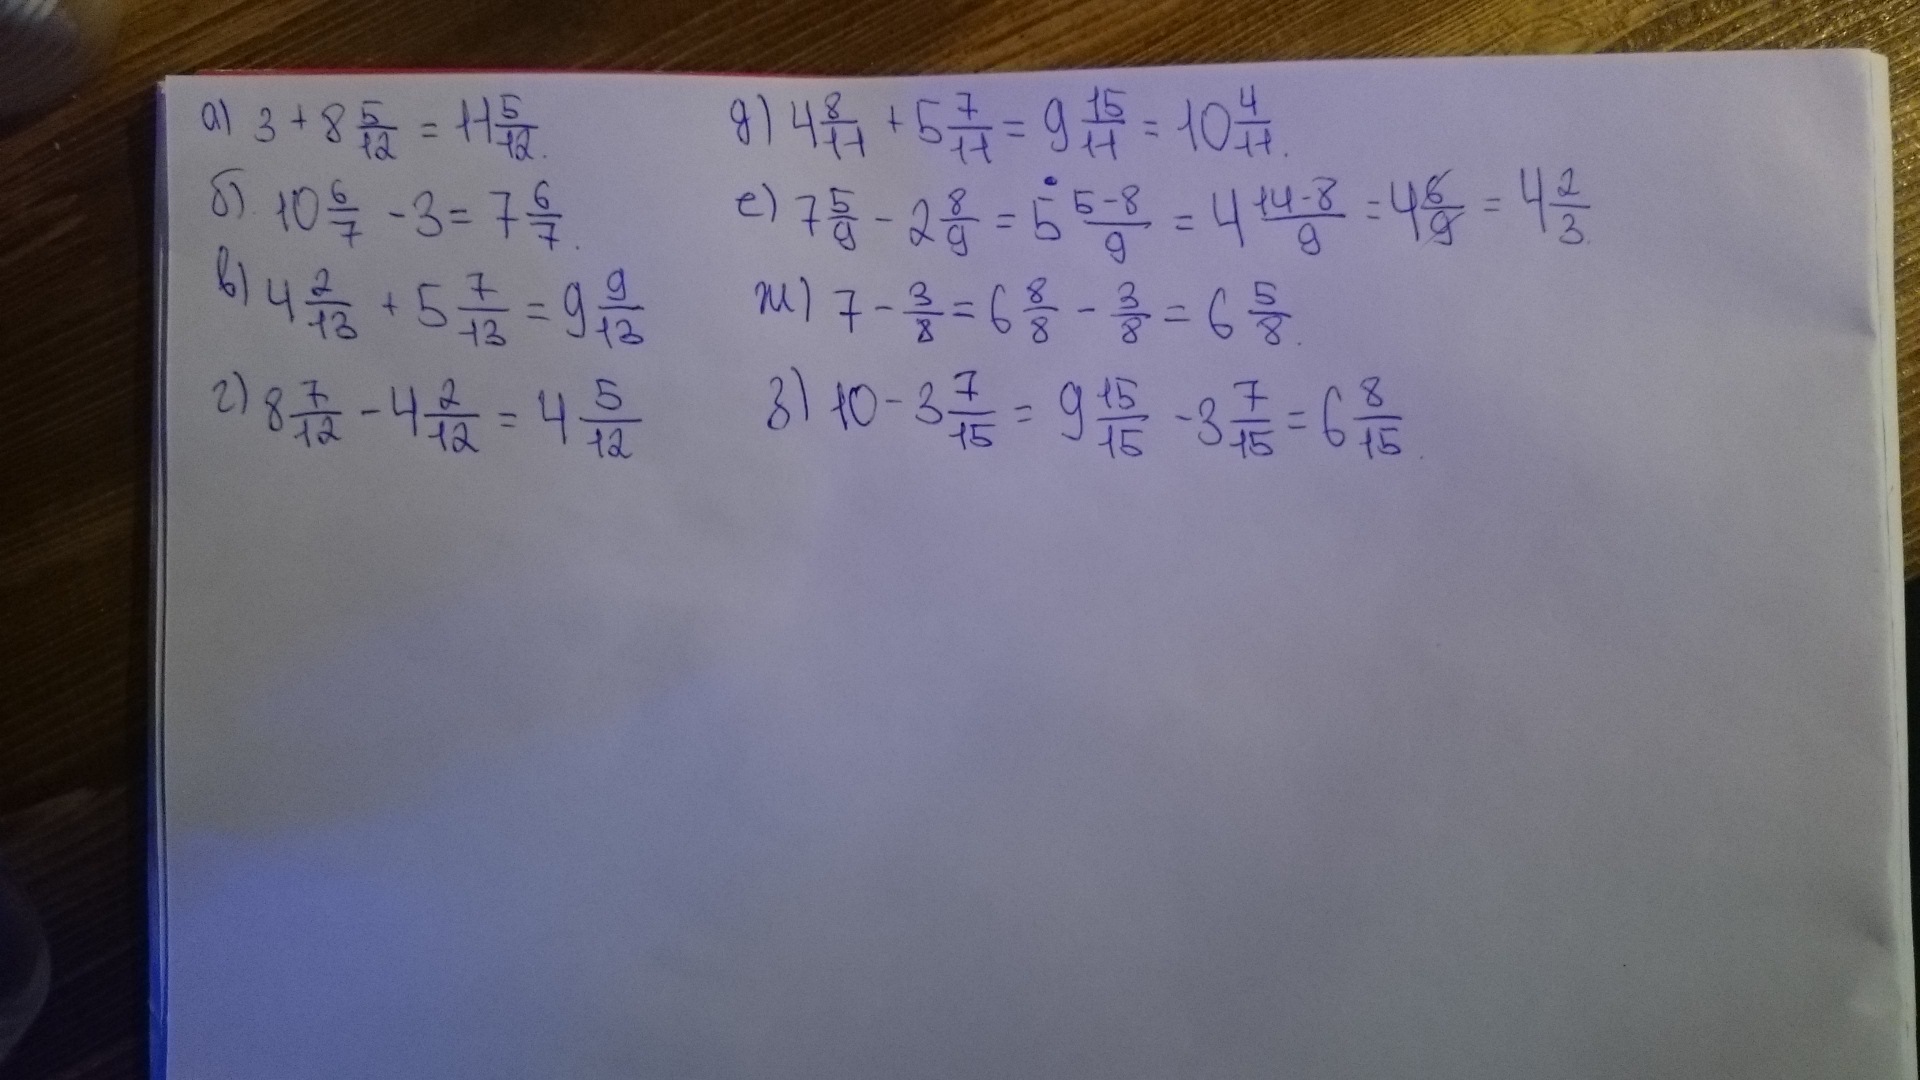 а) 3 + 8 5/12 = 11 5/12.
б). 10 6/7 - 3 = 7 6/7.
в) 4 2/13 + 5 7/13 = 9 9/13
г) 8 7/12 - 4 2/12 = 4 5/12
д) 4 8/11 + 5 7/11 = 9 15/11 = 10 4/11.
е) 7 5/9 - 2 8/9 = 5 (5-8)/9 = 4 (14-8)/9 = 4 6/9 = 4 2/3.
ж) 7 - 3/8 = 6 8/8 - 3/8 = 6 5/8.
з) 10 - 3 7/15 = 9 15/15 - 3 7/15 = 6 8/15.